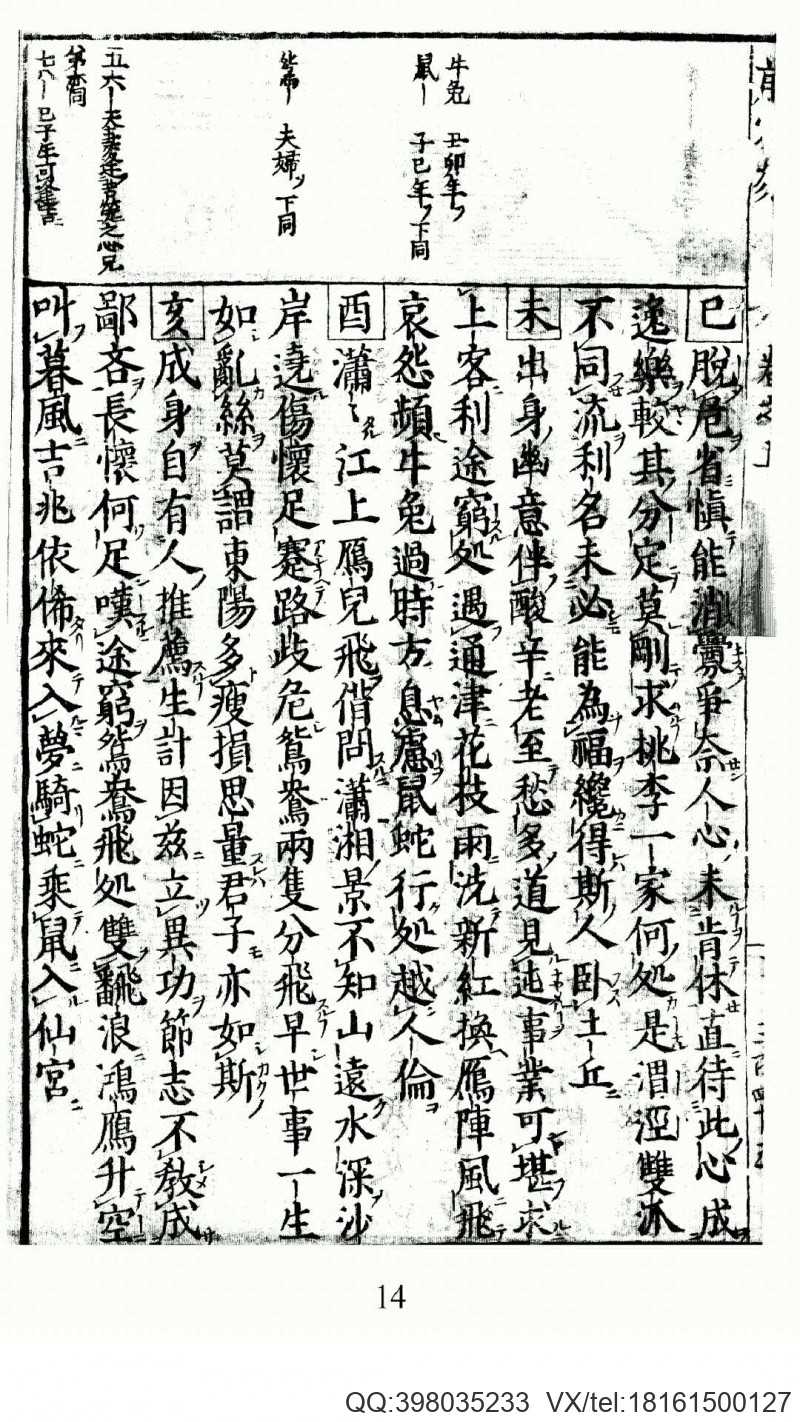 牛兔 丑卯年ノ
鼠｜ 子巳年ノ下同
夫婦ノ下同
七八｜巳子年可逢
巳 脫危省慎能消釁爭奈人心未肯休直待此心成
逸樂較其分定莫剛求桃李一家何処是渭涇雙派
不同流利名未必能為福纔得斯人卧土丘
未 出身幽意伴酸辛老至愁多道見迍事業可堪求
上客利途窮処遇通津花枝雨洗新紅換鴈陣風飛
哀怨頻牛兔過時方息慮鼠蛇行処越人倫
酉 瀟〻江上鴈兒飛偕問瀟湘景不知山遠水深沙
岸遶傷懷足蹇路歧危鴛鴦兩隻分飛早世事一生
如亂絲莫謂東陽多瘦損思量君子亦如斯
亥 成身自有人推薦生計因茲立異功節志不教成
鄙吝長懷何足嘆途窮鴛鴦飛処雙翻浪鴻鴈升空
叫暮風吉兆依俙來入夢騎蛇乘鼠入仙宮
14
QQ:398035233 VX/tel:18161500127